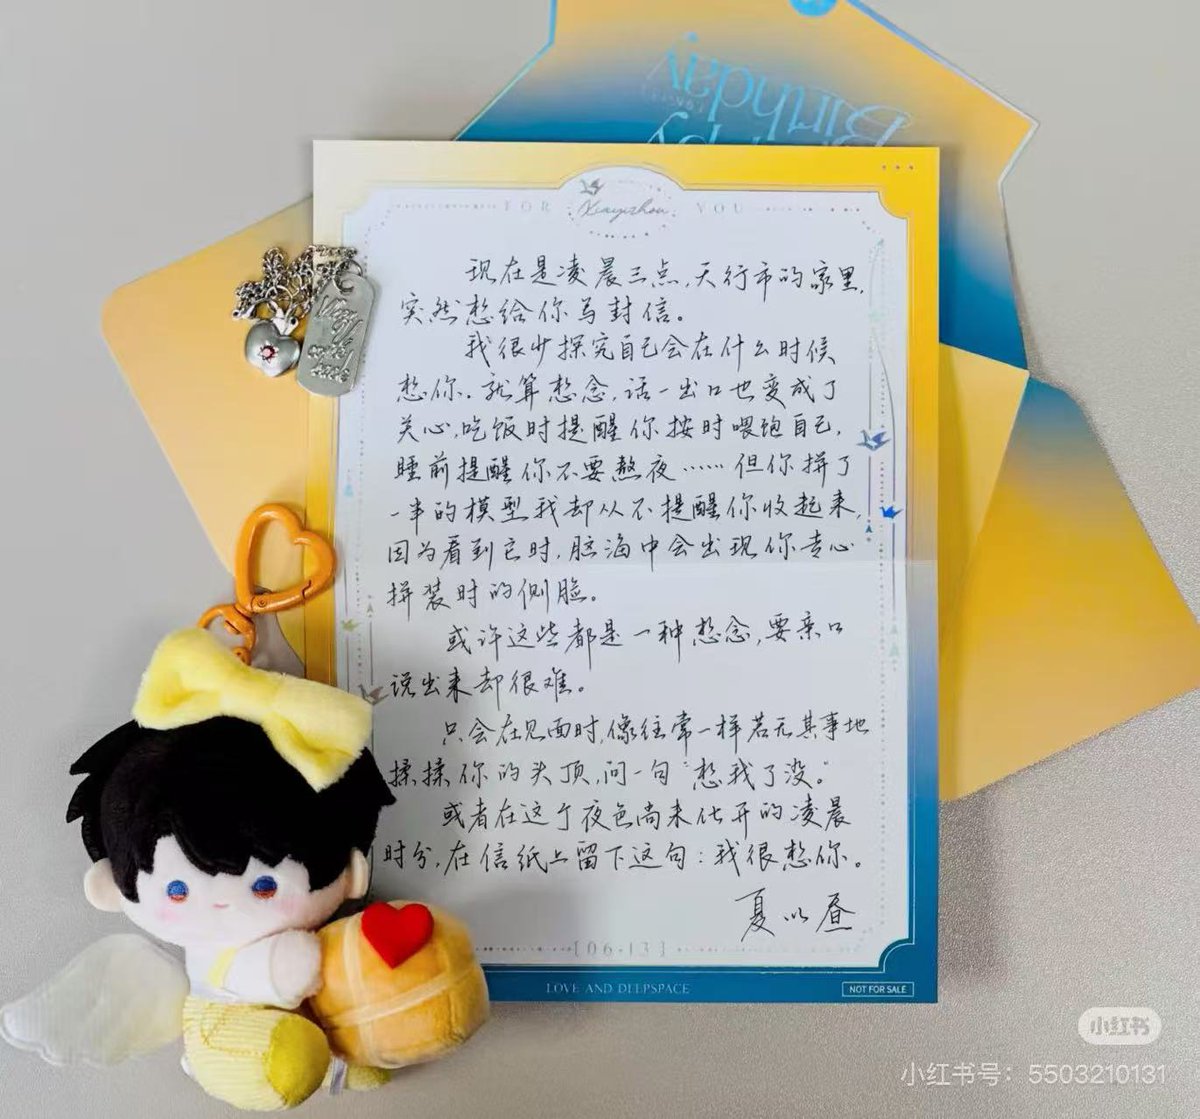 Happy
Birthday
FOR Xiayizhou YOU
现在是凌晨三点,天行市的家里,
突然想给你写封信。
我很少探究自己会在什么时候
想你。就算想念,话一出口也变成了
关心,吃饭时提醒你按时喂饱自己,
睡前提醒你不要熬夜……但你拼了
一半的模型我却从不提醒你收起来,
因为看到它时,脑海中会出现你专心
拼装时的侧脸。
或许这些都是一种想念,要亲口
说出来却很难。
只会在见面时,像往常一样若无其事地
揉揉你的头顶,问一句“想我了没。”
或者在这个夜色尚未化开的凌晨
时分,在信纸上留下这句:我很想你。
夏以昼
[06.13]
LOVE AND DEEPSPACE
NOT FOR SALE
小红书
小红书号:5503210131